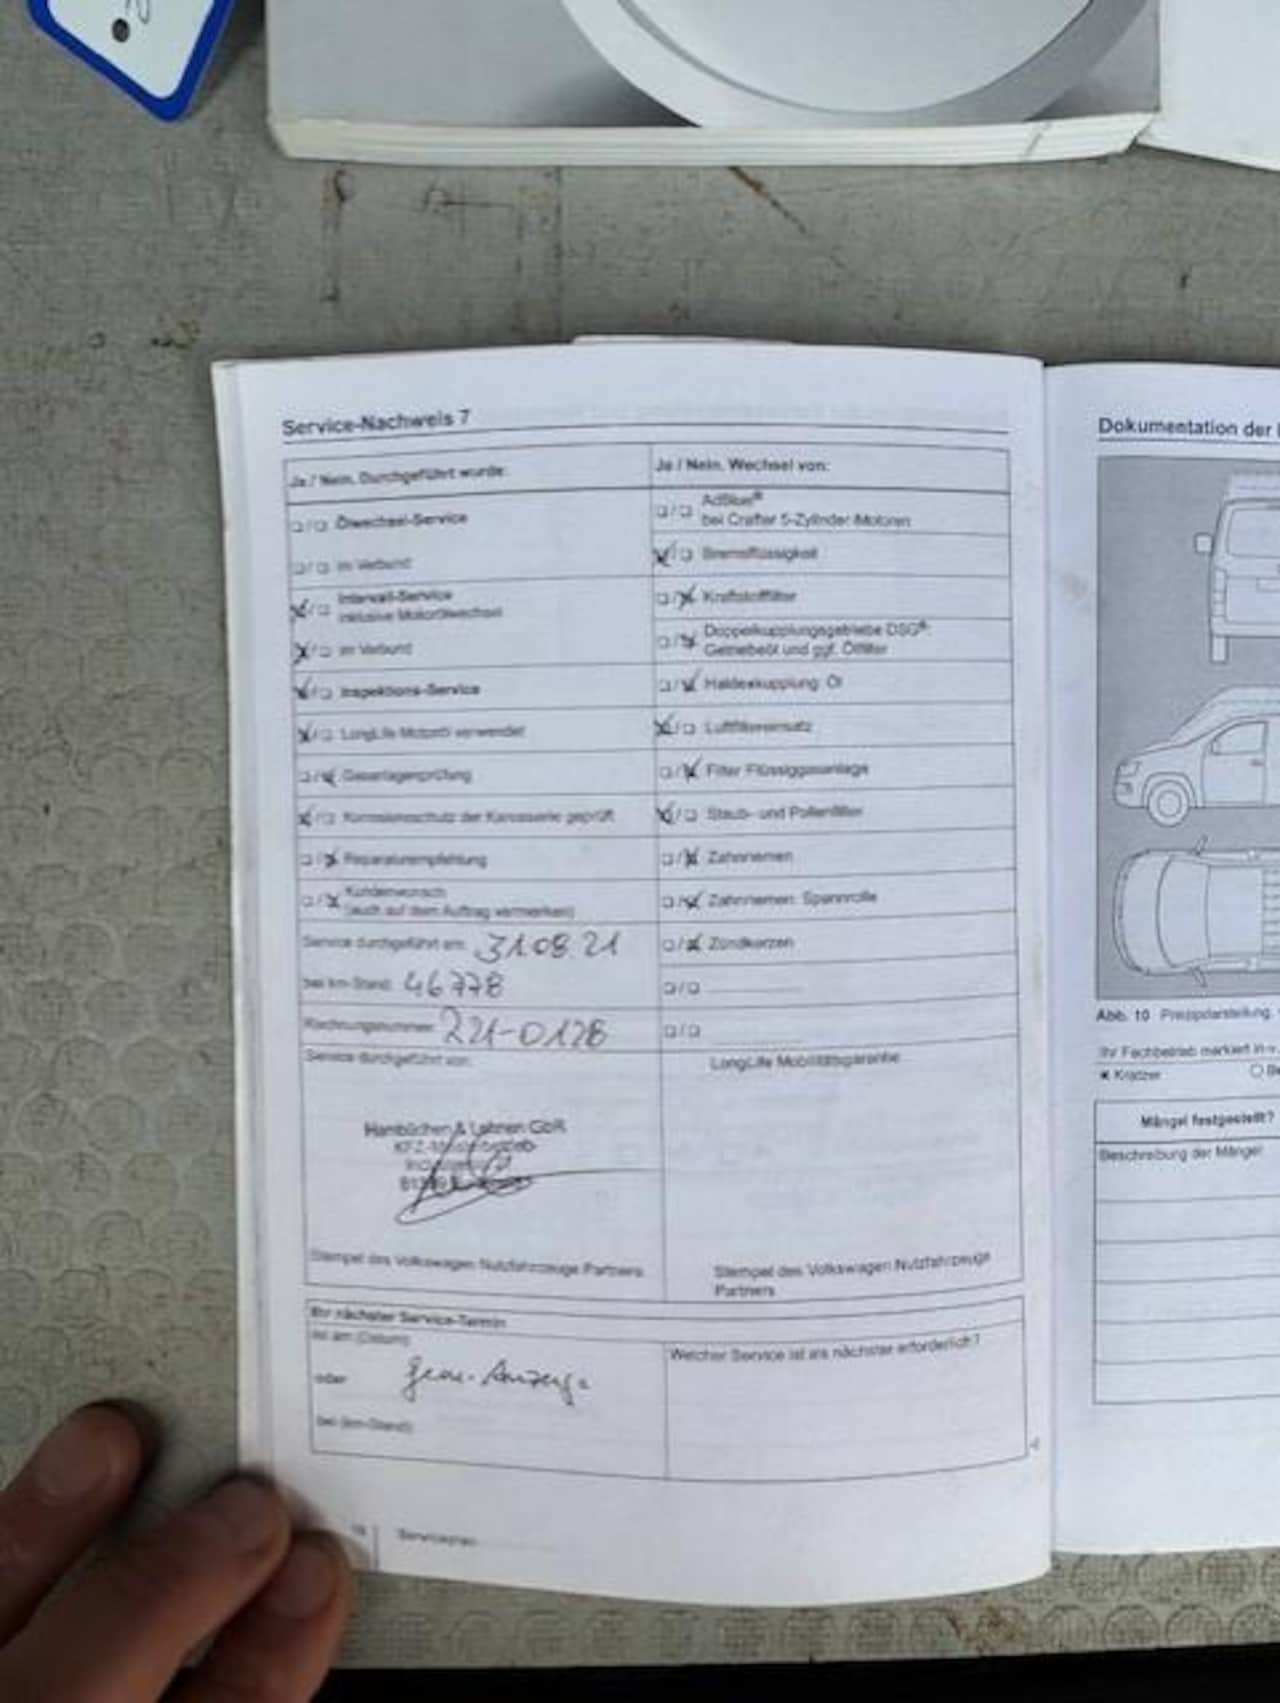 Service-Nachweis 7
Ja / Nein. Durchgeführt wurde:
Ölwechsel-Service
im Verbund
Intervall-Service
inklusive Motorölwechsel
im Verbund
Inspektions-Service
LongLife Motoröl verwendet
Gasanlagenprüfung
Korrosionsschutz der Karosserie geprüft
Reparaturempfehlung
Kundenwunsch
(auch auf dem Auftrag vermerken)
Service durchgeführt am: 31.08.21
bei km-Stand: 46778
Rechnungsnummer: 221-0128
Service durchgeführt von:
Hambüchen & Lehnen GbR
KFZ-Meisterbetrieb
Stempel des Volkswagen Nutzfahrzeuge Partners
Ja / Nein. Wechsel von:
AdBlue®
bei Crafter 5-Zylinder-Motoren
Bremsflüssigkeit
Kraftstofffilter
Doppelkupplungsgetriebe DSG®:
Getriebeöl und ggf. Ölfilter
Haldexkupplung: Öl
Luftfiltereinsatz
Filter Flüssiggasanlage
Staub- und Pollenfilter
Zahnriemen
Zahnriemen: Spannrolle
Zündkerzen
LongLife Mobilitätsgarantie
Stempel des Volkswagen Nutzfahrzeuge
Partners
Ihr nächster Service-Termin
ist am (Datum):
oder
gem. Anzeige
bei (km-Stand):
Welcher Service ist als nächster erforderlich?
Serviceplan
Dokumentation der
Abb. 10 Prinzipdarstellung.
Ihr Fachbetrieb markiert in
Kratzer
Mängel festgestellt?
Beschreibung der Mängel: